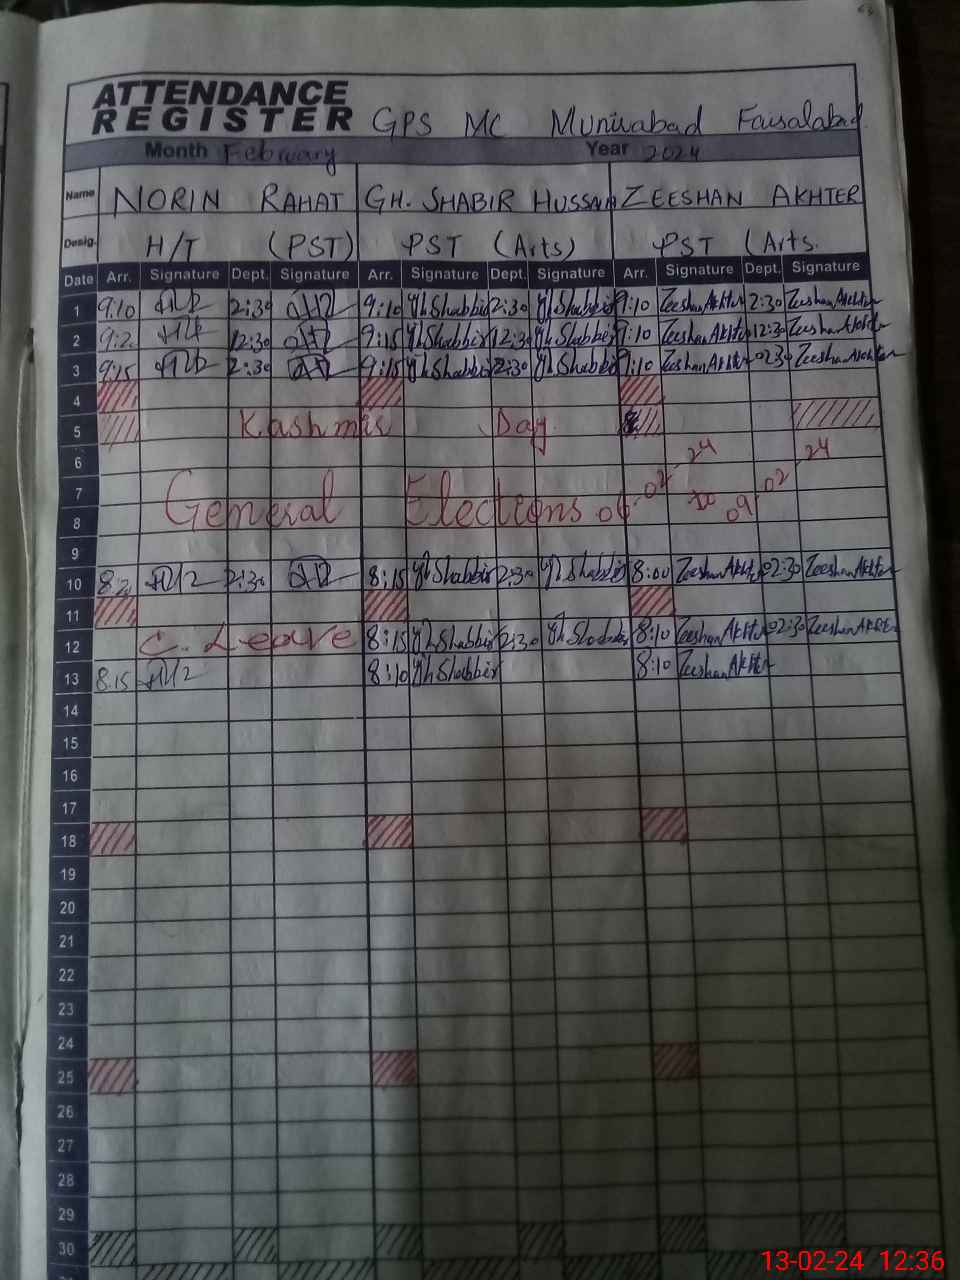 ATTENDANCE
REGISTER GPS MC Munirabad Faisalabad
Month February Year 2024
Name NORIN RAHAT GH. SHABIR HUSSAIN ZEESHAN AKHTER
Desig. H/T (PST) PST (Arts) PST (Arts.
Date Arr. Signature Dept. Signature Arr. Signature Dept. Signature Arr. Signature Dept. Signature
1 9:10 2:30 9:10 Gh Shabbir 2:30 Gh Shabbir 9:10 Zeeshan Akhter 2:30 Zeeshan Akhter
2 12:30 9:15 Gh Shabbir 12:30 Gh Shabbir 9:10 Zeeshan Akhter 12:30 Zeeshan Akhter
3 9:15 2:30 9:15 Gh Shabbir 2:30 Gh Shabbir 9:10 Zeeshan Akhter 02:30 Zeeshan Akhter
4
5 Kashmir Day
6
7 General Elections 06-02-24 to 09-02-24
8
9
10 8:20 2:30 8:15 Gh Shabbir 2:30 Gh Shabbir 8:00 Zeeshan Akhter 02:30 Zeeshan Akhter
11
12 C. Leave 8:15 Gh Shabbir 2:30 Gh Shabbir 8:10 Zeeshan Akhter 02:30 Zeeshan Akhter
13 8:15 8:10 Gh Shabbir 8:10 Zeeshan Akhter
14
15
16
17
18
19
20
21
22
23
24
25
26
27
28
29
30
13-02-24 12:36